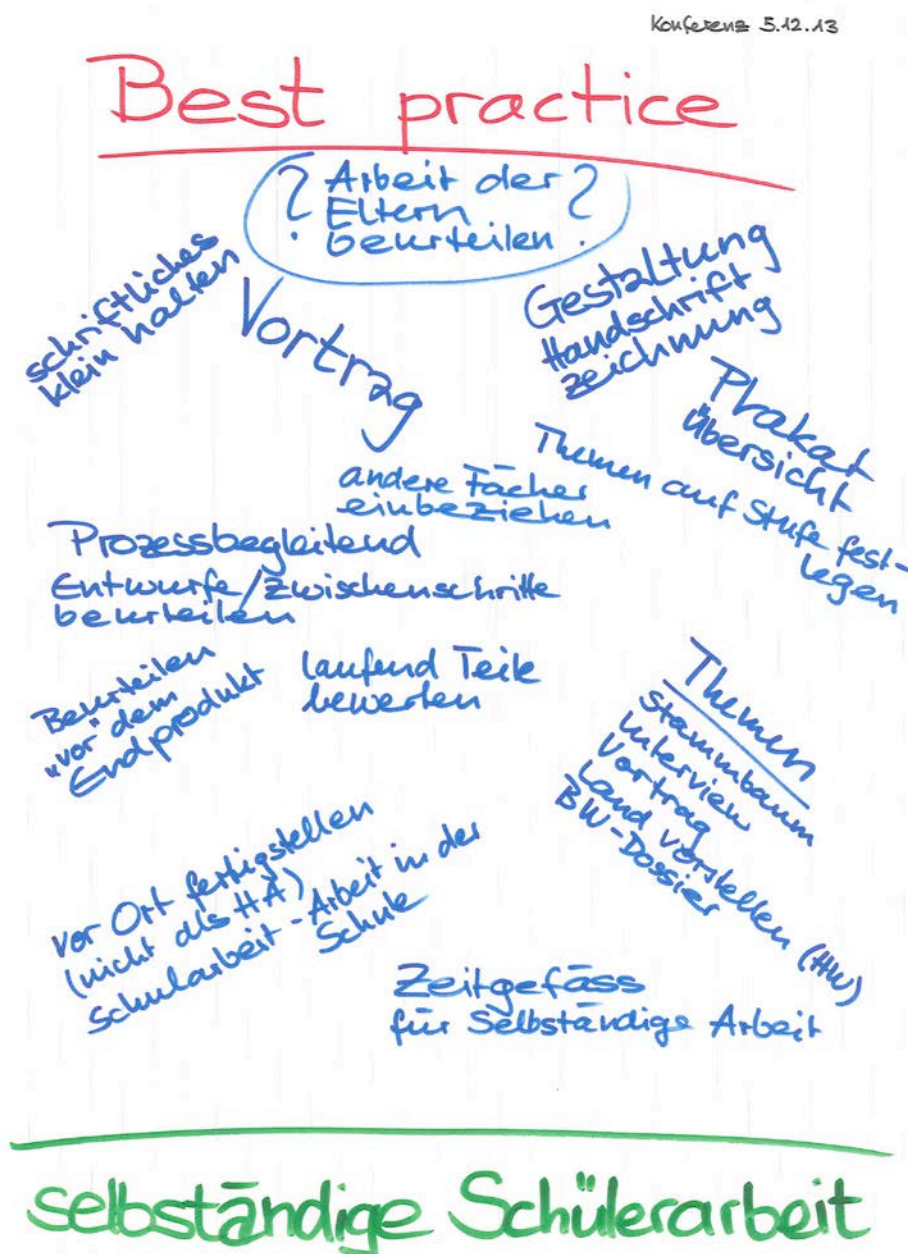 Konferenz 5.12.13
Best practice
? Arbeit der ?
Eltern
beurteilen
schriftliches
klein halten
Vortrag
Gestaltung
Handschrift
Zeichnung
Plakat
Übersicht
Themen auf Stufe fest-
legen
andere Fächer
einbeziehen
Prozessbegleitend
Entwürfe/Zwischenschritte
beurteilen
Beurteilen
"vor" dem
Endprodukt
laufend Teile
bewerten
Themen
Stammbaum
Interview
Vortrag
Land vorstellen (HW)
BW-Dossier
vor Ort fertigstellen
(nicht als HA)
Schularbeit - Arbeit in der
Schule
Zeitgefäss
für Selbständige Arbeit
selbständige Schülerarbeit